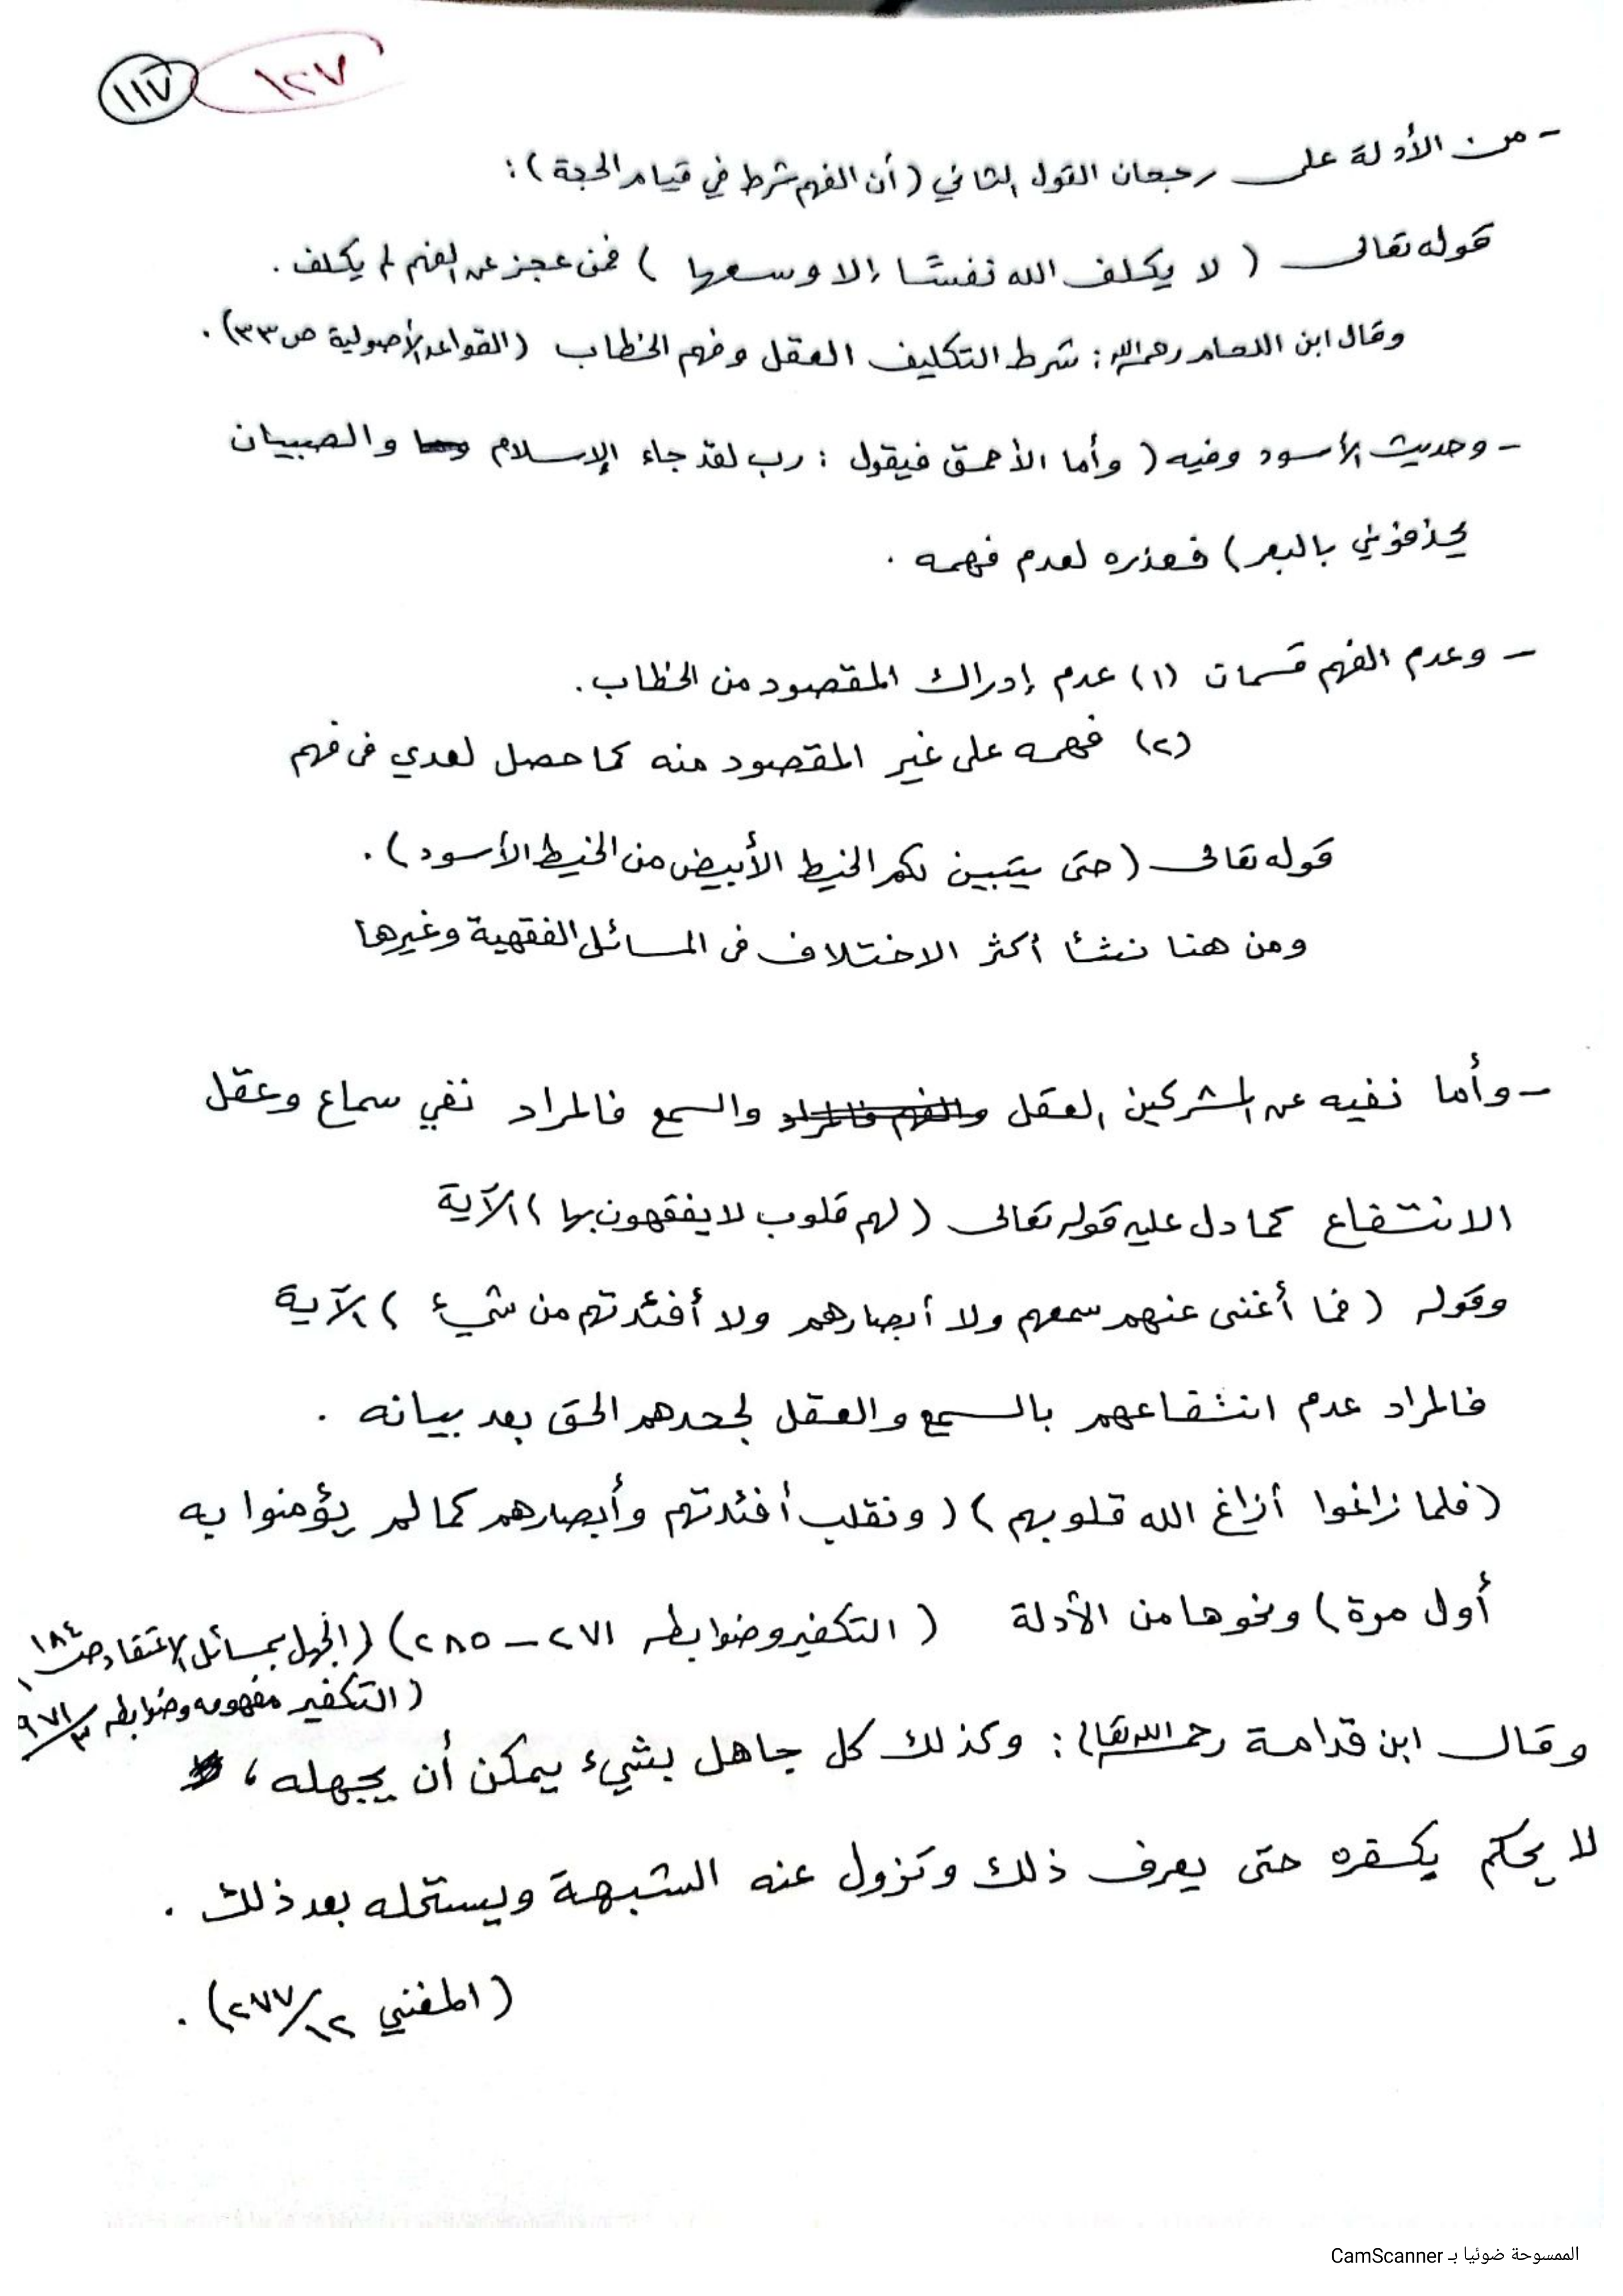 ١١٧ ١٢٧
- من الأدلة على رجحان القول الثاني (أن الفهم شرط في قيام الحجة) :
قوله تعالى ( لا يكلف الله نفسًا إلا وسعها ) فمن عجز عن الفهم لم يكلف .
وقال ابن اللحام رحمه الله : شرط التكليف العقل وفهم الخطاب (القواعد الأصولية ص٣٣) .
- وحديث الأسود وفيه ( وأما الأحمق فيقول : رب لقد جاء الإسلام والصبيان
يحذفوني بالبعر ) فعذره لعدم فهمه .
- وعدم الفهم قسمان (١) عدم إدراك المقصود من الخطاب .
(٢) فهمه على غير المقصود منه كما حصل لعدي في فهم
قوله تعالى ( حتى يتبين لكم الخيط الأبيض من الخيط الأسود ) .
ومن هنا نشأ أكثر الاختلاف في المسائل الفقهية وغيرها
- وأما نفيه عن المشركين العقل والفهم فالمراد والسمع فالمراد نفي سماع وعقل
الانتفاع كما دل عليه قوله تعالى ( لهم قلوب لا يفقهون بها ) الآية
وقوله ( فما أغنى عنهم سمعهم ولا أبصارهم ولا أفئدتهم من شيء ) الآية
فالمراد عدم انتفاعهم بالسمع والعقل لجحدهم الحق بعد بيانه .
( فلما زاغوا أزاغ الله قلوبهم ) ( ونقلب أفئدتهم وأبصارهم كما لم يؤمنوا به
أول مرة ) ونحوها من الأدلة ( التكفير وضوابطه ٢٧١ - ٢٨٥ ) ( الجهل بمسائل الاعتقاد ص ١٨٤
( التكفير مفهومه وضوابطه ٣/٩٧١
وقال ابن قدامة رحمه الله تعالى : وكذلك كل جاهل بشيء يمكن أن يجهله ،
لا يحكم بكفره حتى يعرف ذلك وتزول عنه الشبهة ويستحله بعد ذلك .
( المغني ١٢/٢٧٧ ) .
الممسوحة ضوئيا بـ CamScanner